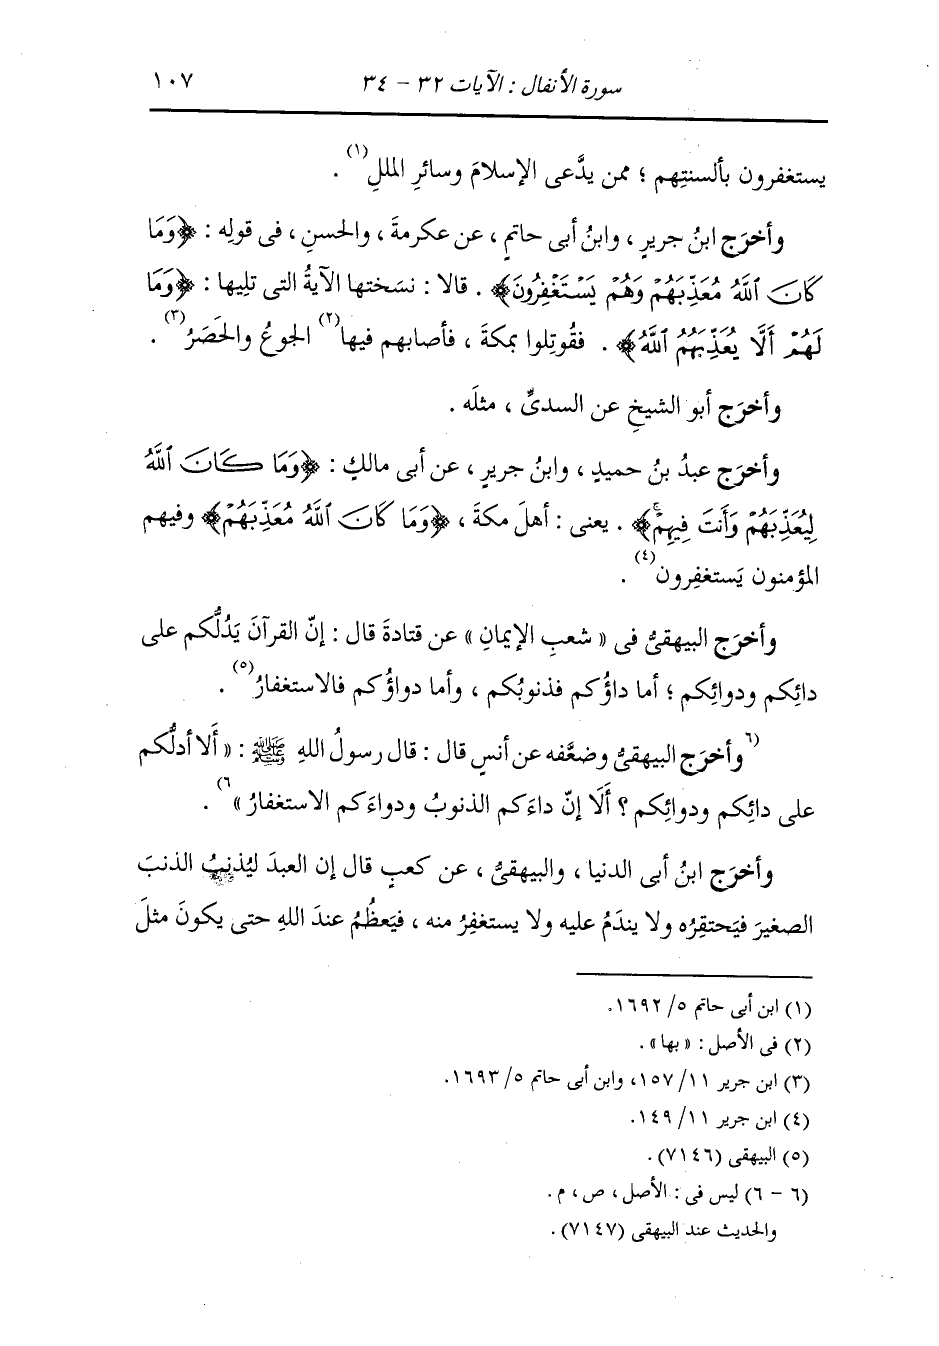 سورة الأنفال : الآيات ٣٢ - ٣٤ ١٠٧
يستغفرون بألسنتِهم ؛ ممن يدَّعى الإسلامَ وسائرِ المللِ(١) .
وأخرَج ابنُ جريرٍ ، وابنُ أبى حاتمٍ ، عن عكرمةَ ، والحسنِ ، فى قولِه : ﴿وَمَا
كَانَ ٱللَّهُ مُعَذِّبَهُمْ وَهُمْ يَسْتَغْفِرُونَ﴾ . قالا : نسَختها الآيةُ التى تلِيها : ﴿وَمَا
لَهُمْ أَلَّا يُعَذِّبَهُمُ ٱللَّهُ﴾ . فقُوتِلوا بمكةَ ، فأصابهم فيها(٢) الجوعُ والحَصَرُ(٣) .
وأخرَج أبو الشيخِ عن السدىِّ ، مثلَه .
وأخرَج عبدُ بنُ حميدٍ ، وابنُ جريرٍ ، عن أبى مالكٍ : ﴿وَمَا كَانَ ٱللَّهُ
لِيُعَذِّبَهُمْ وَأَنتَ فِيهِمْ﴾ . يعنى : أهلَ مكةَ ، ﴿وَمَا كَانَ ٱللَّهُ مُعَذِّبَهُمْ﴾ وفيهم
المؤمنون يَستغفِرون(٤) .
وأخرَج البيهقىُّ فى « شعبِ الإيمانِ » عن قتادةَ قال : إنّ القرآنَ يَدُلُّكم على
دائِكم ودوائِكم ؛ أما داؤُكم فذنوبُكم ، وأما دواؤُكم فالاستغفارُ(٥) .
(٦وأخرَج البيهقىُّ وضعَّفه عن أنسٍ قال : قال رسولُ اللهِ ﷺ : « أَلا أدلُّكم
على دائِكم ودوائِكم ؟ أَلَا إنّ داءَكم الذنوبُ ودواءَكم الاستغفارُ »٦) .
وأخرَج ابنُ أبى الدنيا ، والبيهقىُّ ، عن كعبٍ قال إن العبدَ ليُذنِبُ الذنبَ
الصغيرَ فيَحتقِرُه ولا يندَمُ عليه ولا يستغفِرُ منه ، فيَعظُمُ عندَ اللهِ حتى يكونَ مثلَ
(١) ابن أبى حاتم ٥/ ١٦٩٢.
(٢) فى الأصل : « بها » .
(٣) ابن جرير ١١/ ١٥٧، وابن أبى حاتم ٥/ ١٦٩٣.
(٤) ابن جرير ١١/ ١٤٩.
(٥) البيهقى (٧١٤٦) .
(٦ - ٦) ليس فى : الأصل ، ص ، م .
والحديث عند البيهقى (٧١٤٧) .